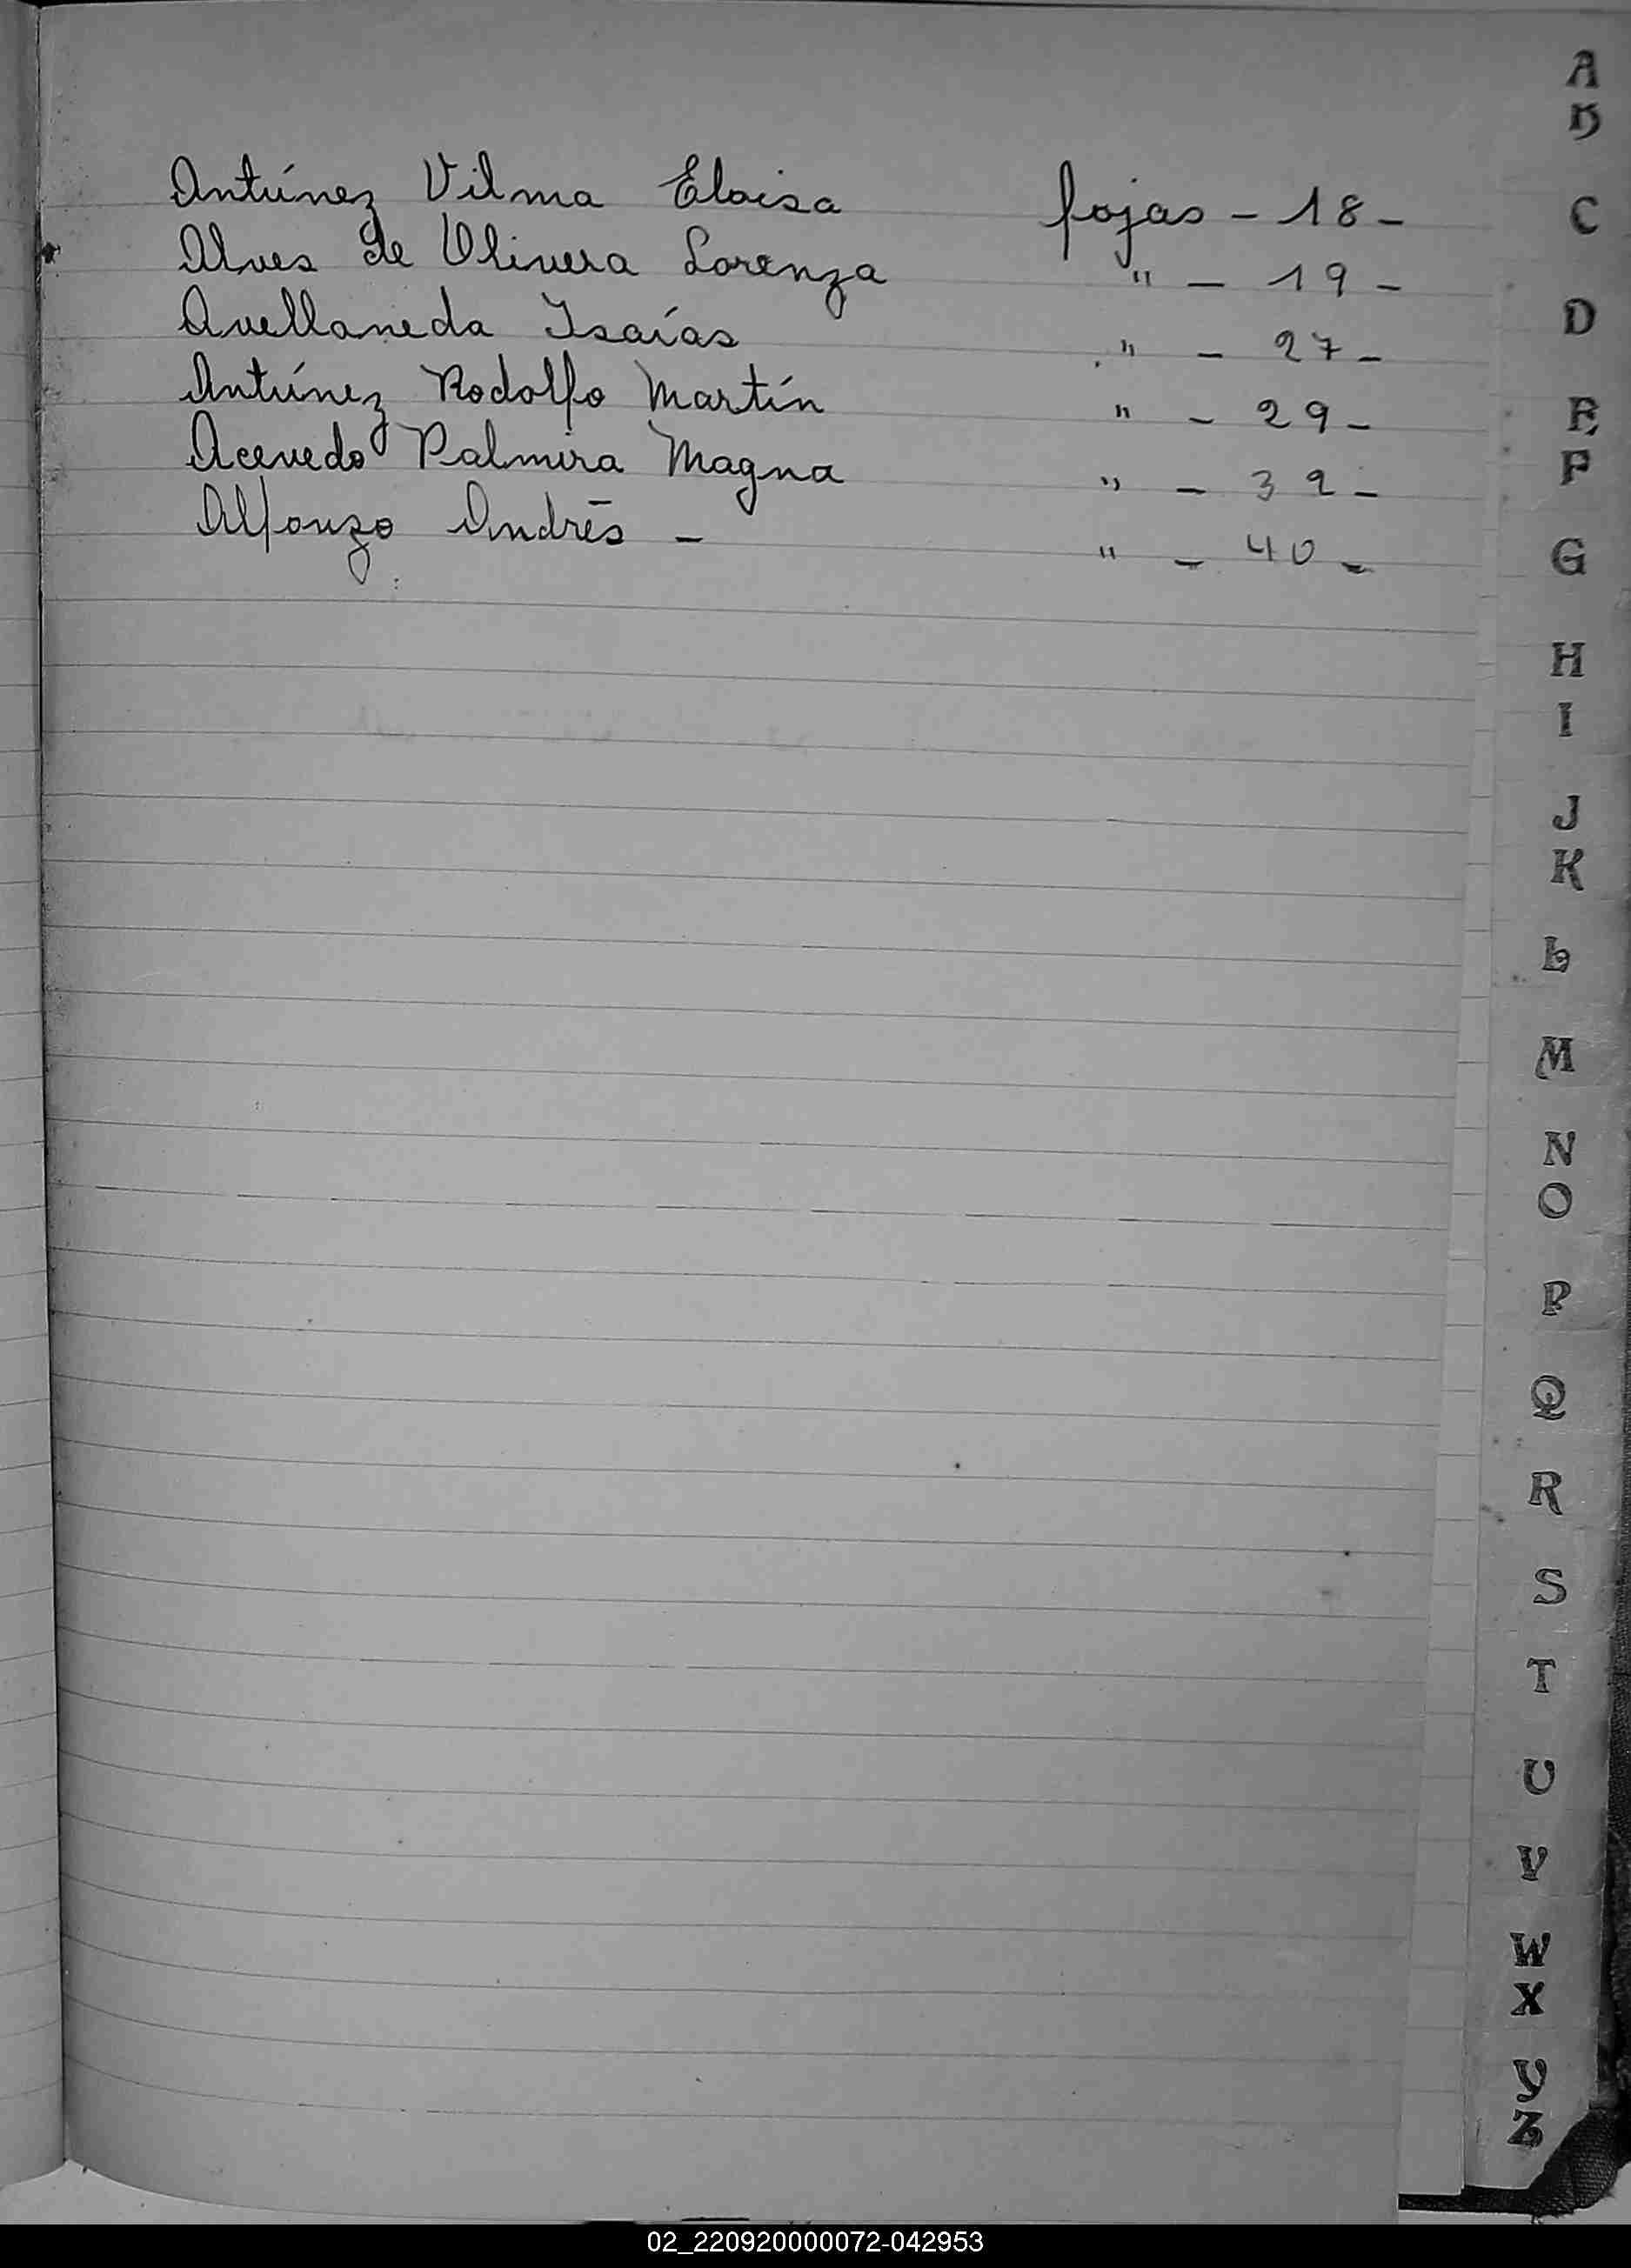 Antúnez Vilma Eloisa fojas - 18 -
Alves de Olivera Lorenza " - 19 -
Avellaneda Isaías " - 27 -
Antúnez Rodolfo Martín " - 29 -
Acevedo Palmira Magna " - 32 -
Alfonzo Andrés - " - 40 -
A
B
C
D
E
F
G
H
I
J
K
L
M
N
O
P
Q
R
S
T
U
V
W
X
Y
Z
02_220920000072-042953